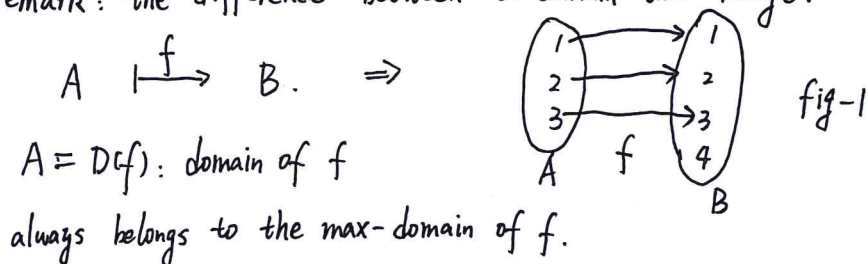 emark: the difference between domain and range.
A f B. ⇒
1 1
2 2
3 3
4
A f B
fig-1
A = D(f): domain of f
always belongs to the max-domain of f.